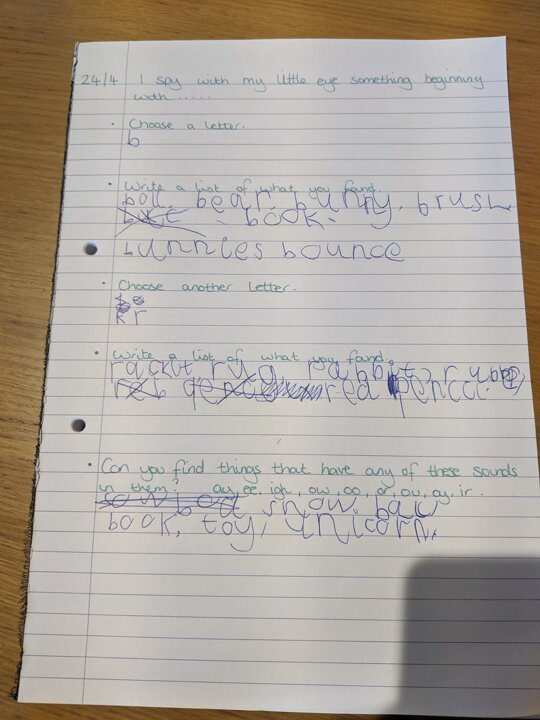 24/4 I spy with my little eye something beginning
with .....
• Choose a letter.
b
• Write a list of what you found.
ball. bear. bunny. brush
book.
bunnies bounce
• Choose another letter.
r
• Write a list of what you found.
rackut rug, rabbit, rubber,
red pencil.
• Can you find things that have any of these sounds
in them? ay, ee, igh, ow, oo, or, ou, oy, ir.
snow. ball
book, toy, unicorn,